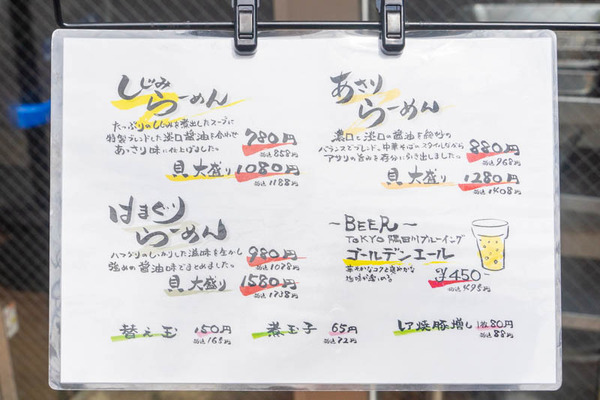 しじみ
らーめん
たっぷりのしじみを煮出したスープに
特製ブレンドした淡口醤油を合わせ
あっさり味に仕上げました。
780円
税込858円
貝大盛り 1080円
税込1188円
あさり
らーめん
濃口と淡口の醤油を絶妙の
バランスでブレンド、中華そばスタイルながら
アサリの旨みを存分に引き出しました。
880円
税込968円
貝大盛り 1280円
税込1408円
はまぐり
らーめん
ハマグリのしっかりした滋味を生かし
強めの醤油味でまとめました。
980円
税込1078円
貝大盛り 1580円
税込1738円
~BEER~
TOKYO隅田川ブルーイング
ゴールデンエール
華やかなコクと爽やかな
後味が楽しめる
¥450-
税込¥495
替え玉 150円
税込165円
煮玉子 65円
税込72円
レア焼豚増し 1枚80円
税込88円